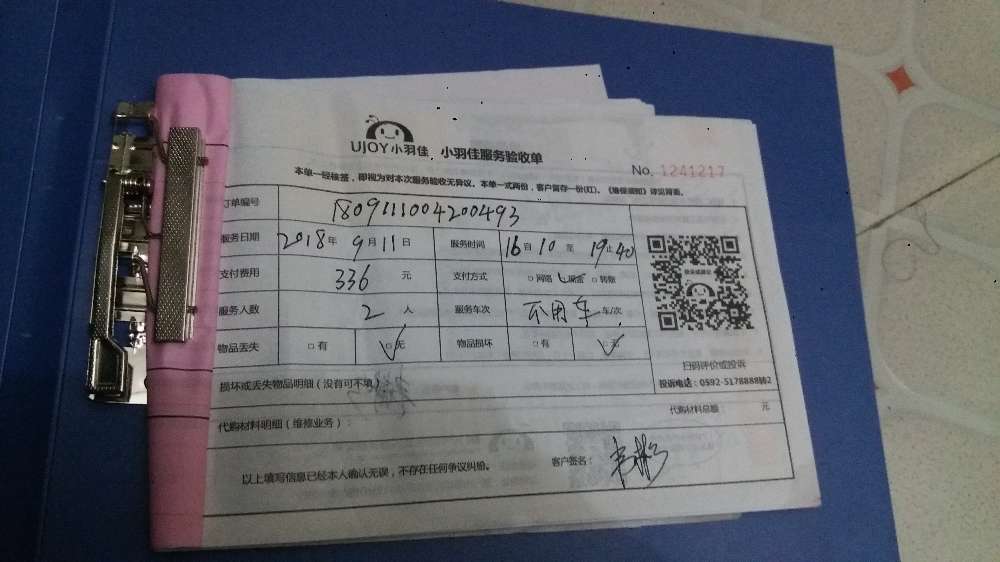 UJOY小羽佳 小羽佳服务验收单
No. 1241217
本单一经核签，即视为对本次服务验收无异议。本单一式两份，客户留存一份(红)。《维保须知》详见背面。
订单编号 1809111004200493
服务日期 2018年 9月11日 服务时间 16自10至 19止40
支付费用 336 元 支付方式 □网络 □现金 □转账
服务人数 2 人 服务车次 不用车 车/次
物品丢失 □有 □无 物品损坏 □有 □无
扫码评价或投诉
投诉电话：0592-5178888转2
损坏或丢失物品明细（没有可不填）
代购材料明细（维修业务）： 代购材料总额： 元
以上填写信息已经本人确认无误，不存在任何争议纠纷。 客户签名：